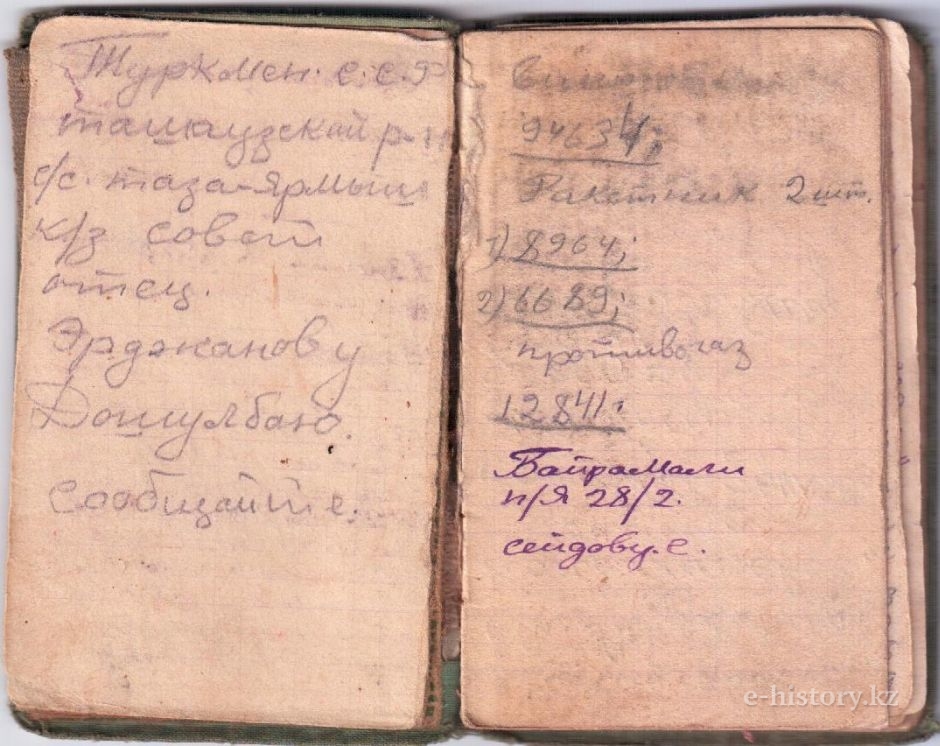 Туркмен. с.с.р
ташаузский р-н
с/с. таза-Ярмыш
к/з совет
отец.
Эрджанову
Дошулбаю.
сообщайте.
94634;
Ракетник 2 шт.
1) 8964;
2) 6689;
противогаз
12841.
Байрамали
п/я 28/2.
сейдову. с.
e-history.kz